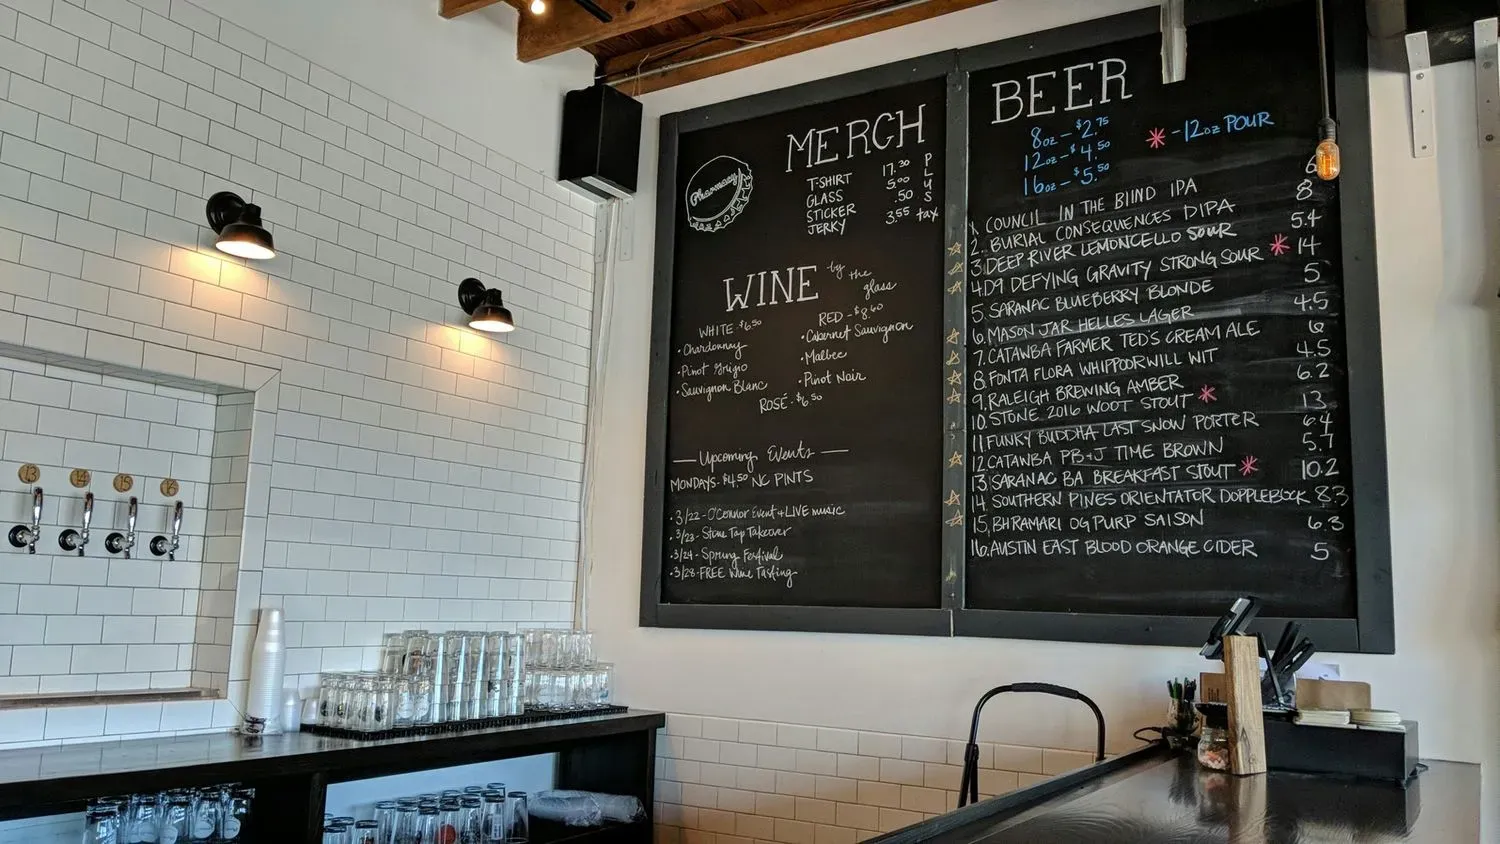 MERCH
Pharmacy
T-SHIRT 17.30 P
GLASS 5.00 L
STICKER .50 U
JERKY 3.55 S
tax
WINE by the glass
WHITE - $6.50
• Chardonnay
• Pinot Grigio
• Sauvignon Blanc
RED - $8.60
• Cabernet Sauvignon
• Malbec
• Pinot Noir
ROSÉ - $6.50
— Upcoming Events —
MONDAYS - $4.50 NC PINTS
• 3/22 - O'Connor Event + LIVE music
• 3/23 - Stone Tap Takeover
• 3/24 - Spring Festival
• 3/28 - FREE Wine Tasting
BEER
8oz - $2.75
12oz - $4.50
16oz - $5.50
* - 12oz POUR
1. COUNCIL IN THE BIIND IPA 6
2. BURIAL CONSEQUENCES DIPA 8
3. DEEP RIVER LEMONCELLO SOUR 5.4
4. D9 DEFYING GRAVITY STRONG SOUR * 14
5. SARANAC BLUEBERRY BLONDE 5
6. MASON JAR HELLES LAGER 4.5
7. CATAWBA FARMER TED'S CREAM ALE 6
8. FONTA FLORA WHIPPOORWILL WIT 4.5
9. RALEIGH BREWING AMBER 6.2
10. STONE 2016 WOOT STOUT * 13
11. FUNKY BUDDHA LAST SNOW PORTER 6.4
12. CATAWBA PB+J TIME BROWN 5.7
13. SARANAC BA BREAKFAST STOUT * 10.2
14. SOUTHERN PINES ORIENTATOR DOPPLEBOCK 8.3
15. BHRAMARI OG PURP SAISON 6.3
16. AUSTIN EAST BLOOD ORANGE CIDER 5
13
14
15
16